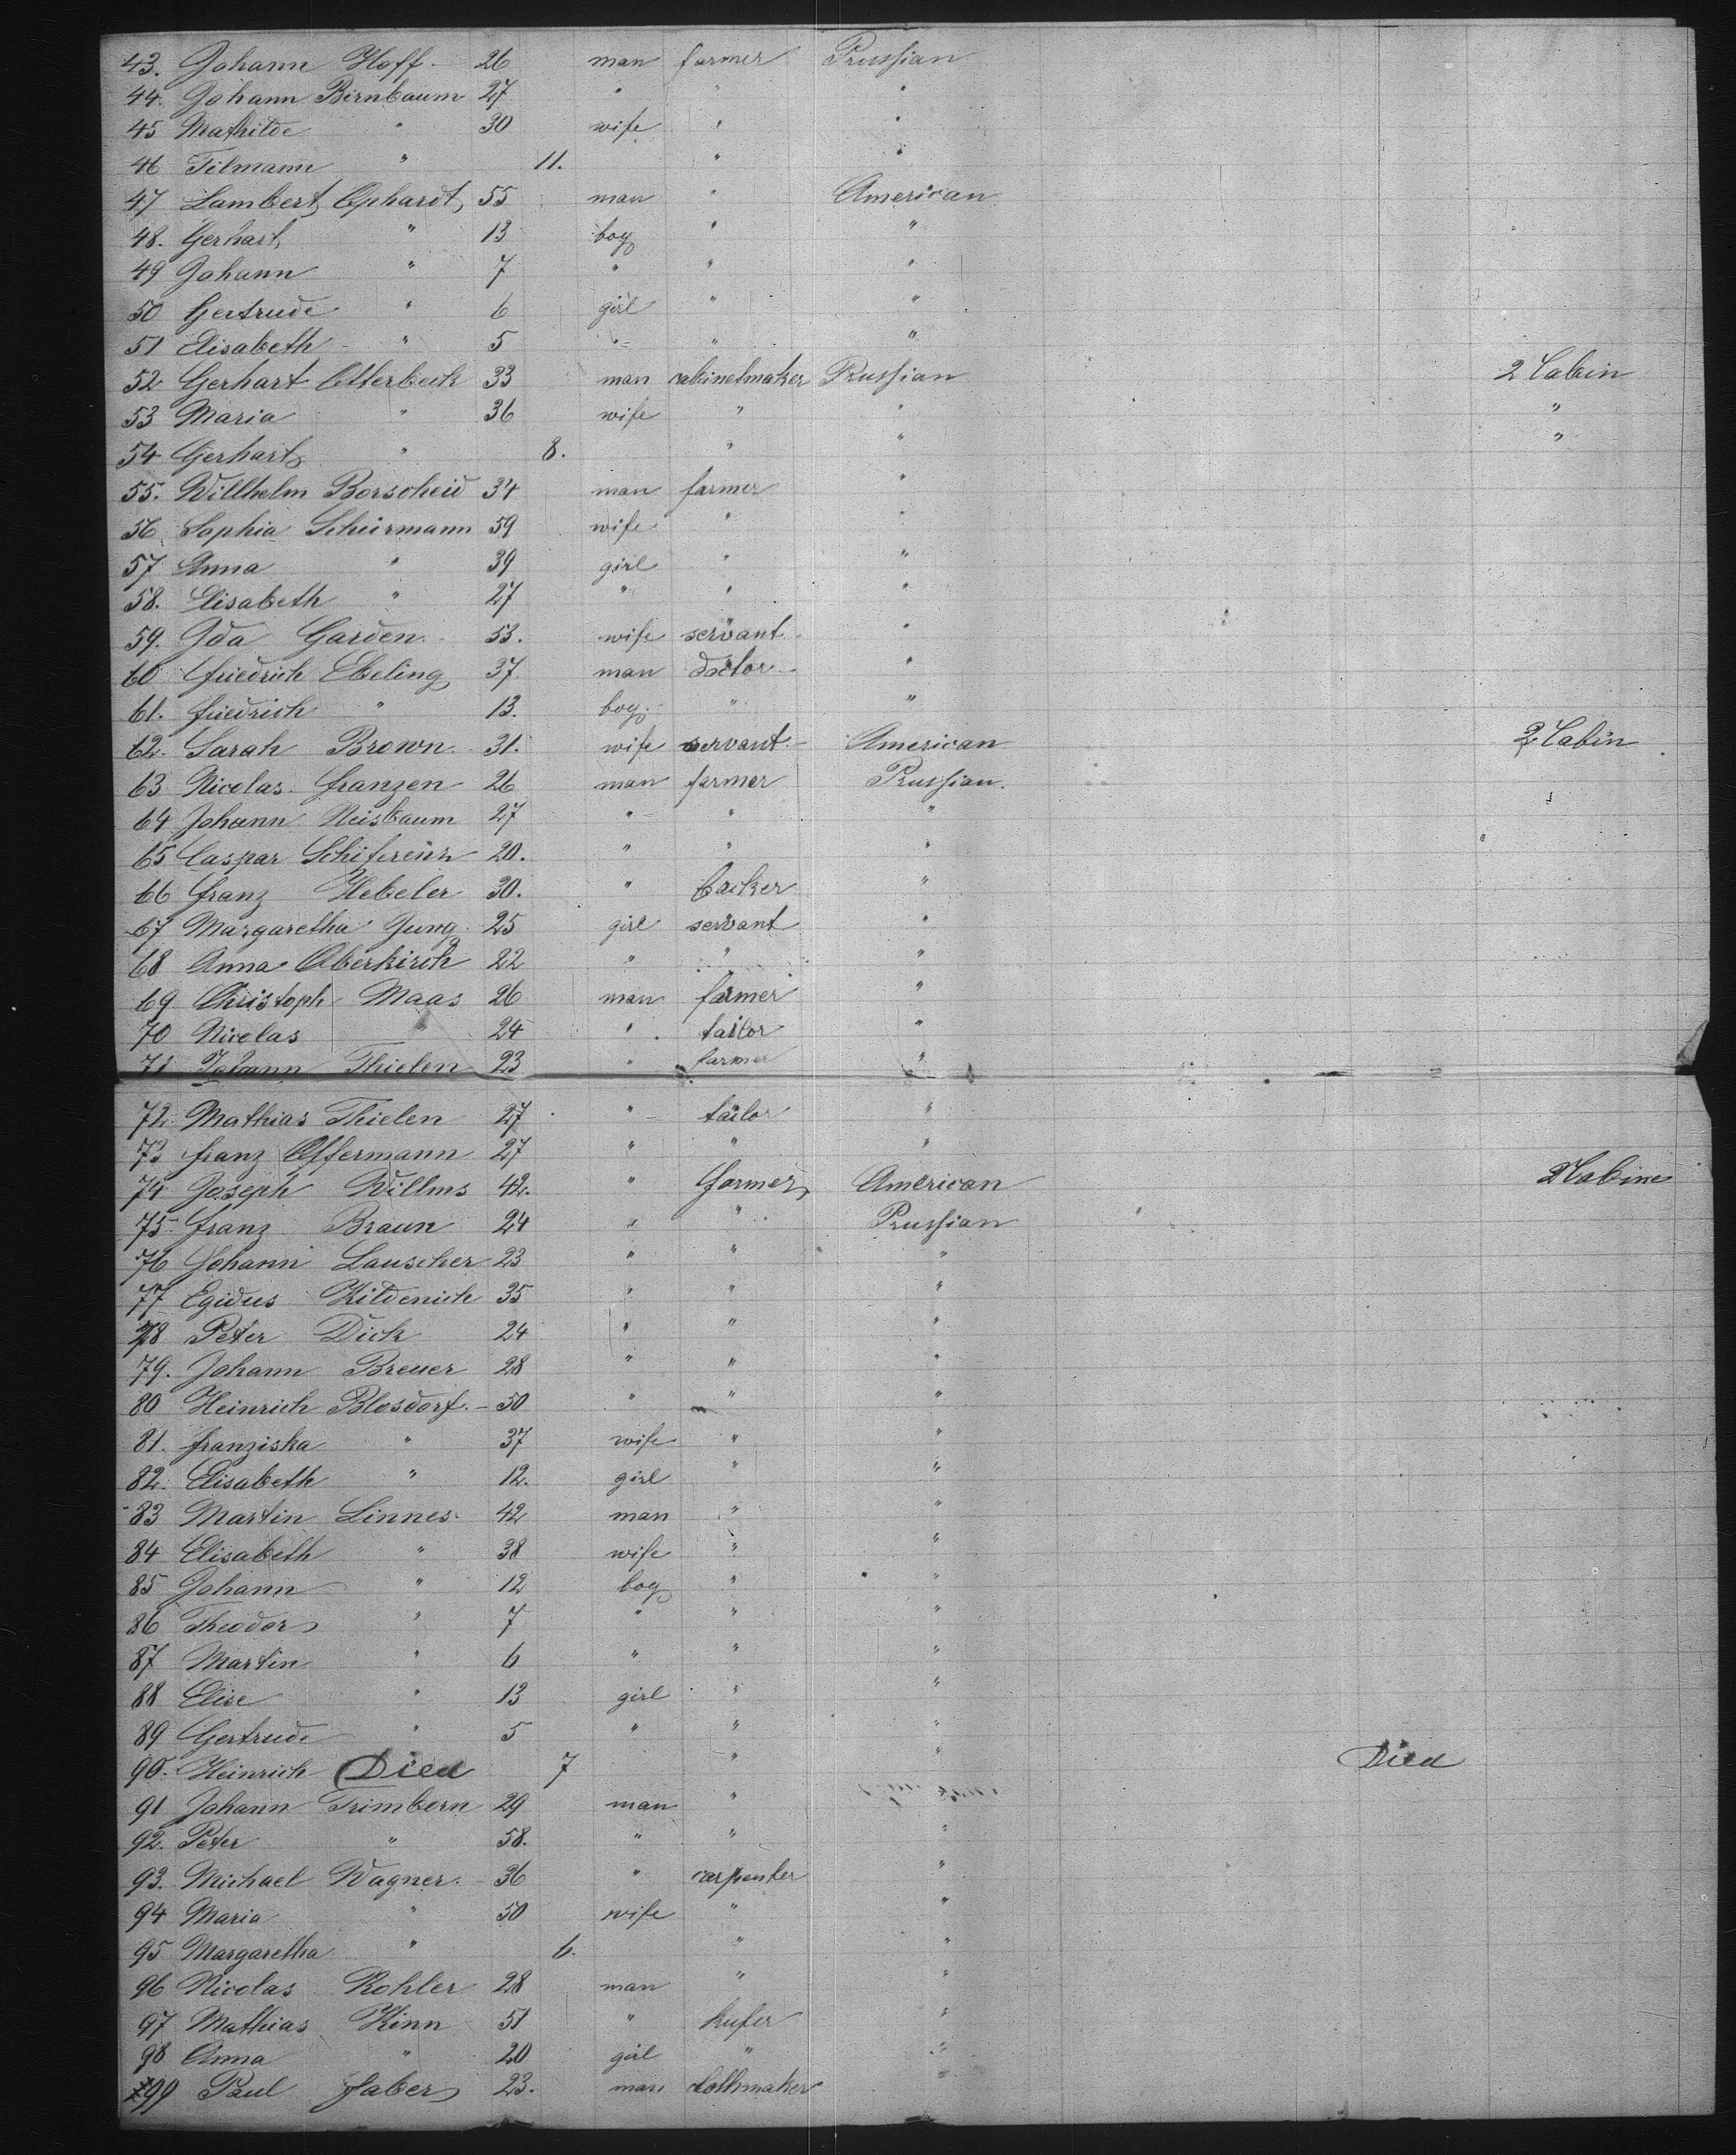 43. Johann Hoff 26 man farmer Prussian
44. Johann Birnbaum 27 " " "
45 Mathilde " 30 wife " "
46 Tilmann " 11. " "
47 Lambert Ophardt 55 man " American
48. Gerhart " 13 boy " "
49 Johann " 7 " " "
50 Gertrude " 6 girl " "
51 Elisabeth " 5 " " "
52 Gerhart Otterbeck 33 man cabinetmaker Prussian 2 Cabin
53 Maria " 36 wife " " "
54 Gerhart " 8. " " "
55. Willhelm Borscheid 34 man farmer "
56 Sophia Schürmann 59 wife " "
57 Anna " 39 girl " "
58. Elisabeth " 27 " " "
59. Ida Garden 53. wife servant "
60 Friedrich Ebeling 37. man doctor "
61. Friedrich " 13. boy " "
62. Sarah Brown 31. wife servant American 2 Cabin
63 Nicolas Franzen 26 man farmer Prussian.
64 Johann Neisbaum 27 " " "
65 Caspar 20. " " "
66 Franz Hebeler 30. " backer "
67 Margaretha Jung 25 girl servant "
68 Anna Oberkirch 22 " " "
69 Christoph Maas 26 man farmer "
70 Nicolas " 24 " tailor "
71 Johann Thielen 23 " farmer "
72. Mathias Thielen 27 " tailor "
73 Franz Offermann 27 " " "
74 Joseph Willms 42. " farmer American 2 Cabine
75. Franz Braun 24 " " Prussian
76 Johann Lauscher 23 " " "
77 Egidus Kildenich 35 " " "
78 Peter Dick 24 " " "
79. Johann Breuer 28 " " "
80 Heinrich Blosdorf. 50 " " "
81. Franziska " 37 wife " "
82. Elisabeth " 12. girl " "
83 Martin Linnes 42 man " "
84 Elisabeth " 38 wife " "
85 Johann " 12 boy " "
86 Theodor " 7 " " "
87 Martin " 6 " " "
88 Elise " 13 girl " "
89 Gertrude " 5 " " "
90. Heinrich Died 7 " " Died
91 Johann Trimborn 29 man "
92. Peter " 58. " " "
93. Michael Wagner. 36 " carpenter "
94 Maria " 50 wife " "
95 Margaretha " 6. " "
96 Nicolas Kohler 28 man " "
97 Mathias Kinn 51 " kufer "
98 Anna " 20 girl " "
99 Paul Faber 23. man clothmaker "